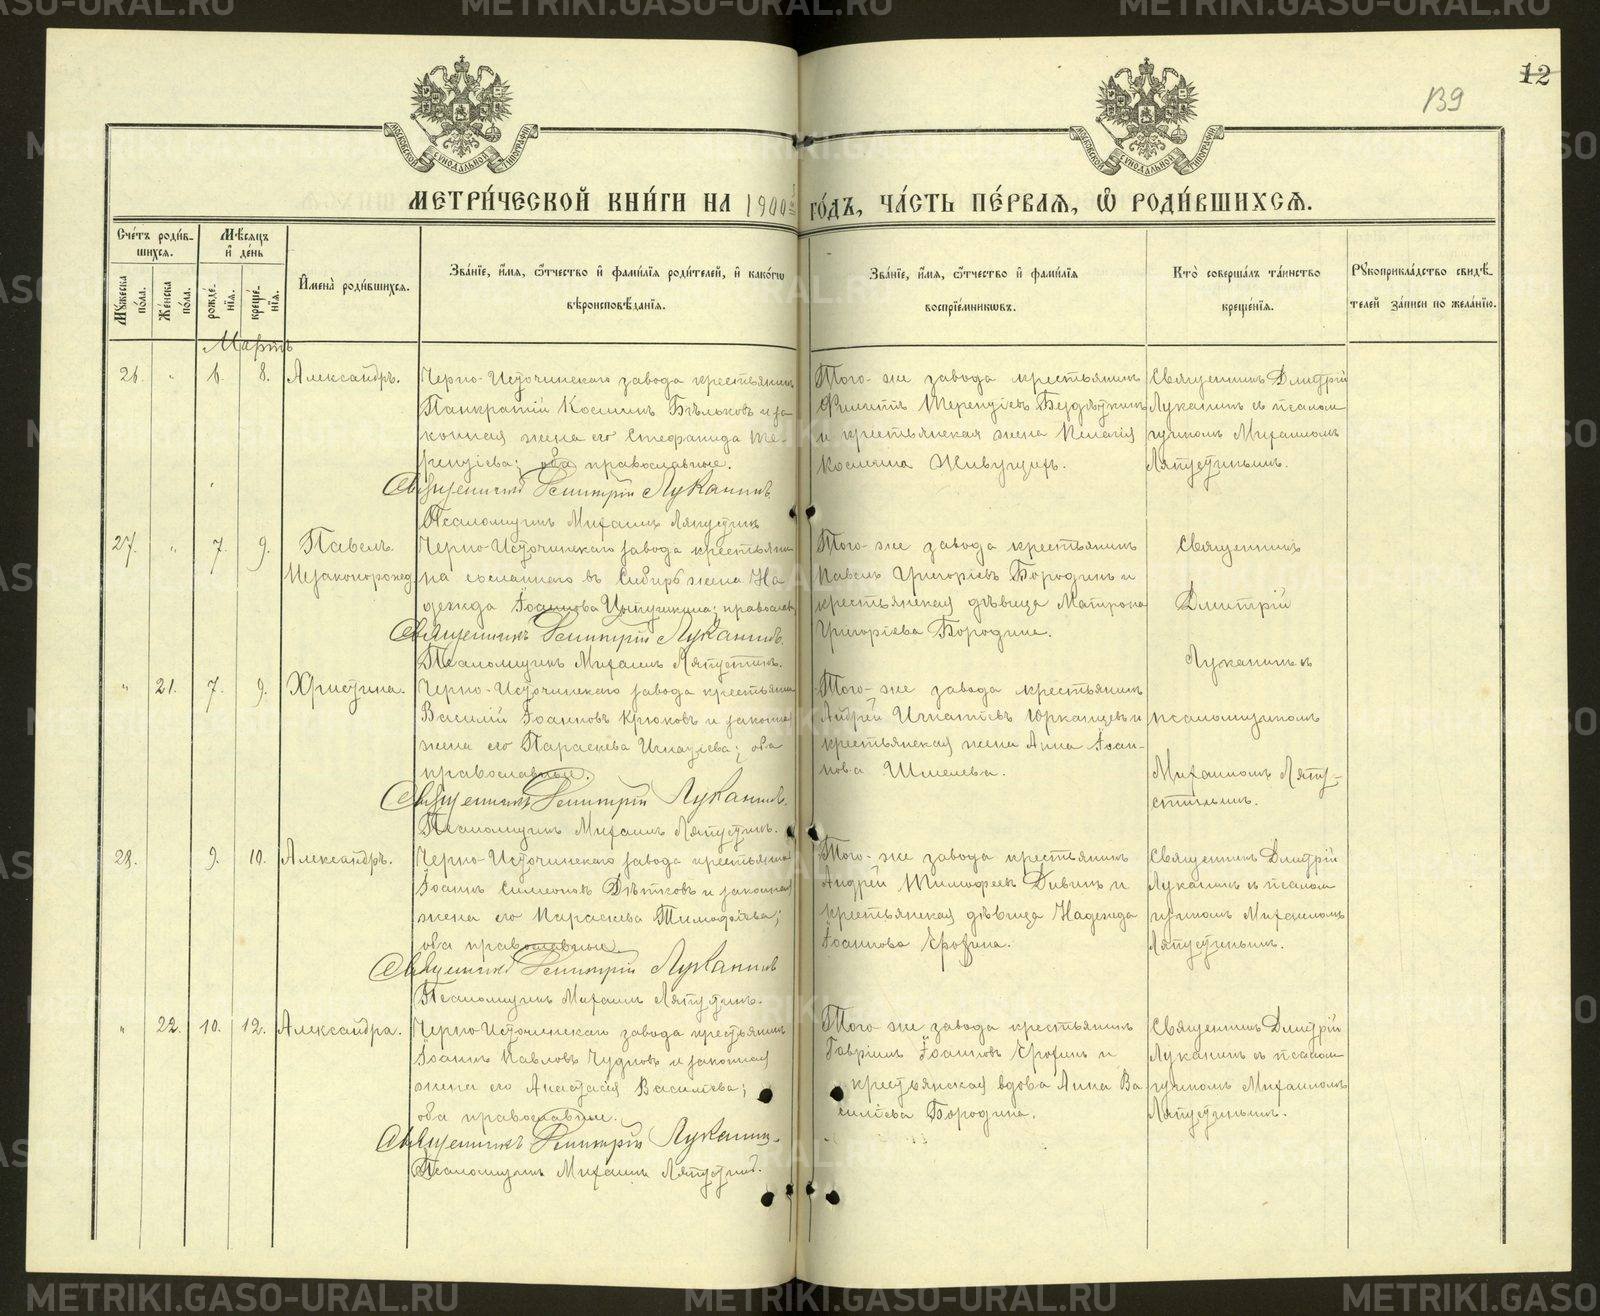 12
139
МЕТРИ́ЧЕСКОЙ КНИ́ГИ НА 1900 ГО́ДЪ, ЧА́СТЬ ПЕ́РВАѦ, Ѽ РОДИ́ВШИХСѦ.
Сче́тъ роди́в-
шихся.
Мѣ́сяцъ
и҆ де́нь
Мꙋ́жеска по́ла.
Же́нска по́ла.
рожде́нїѧ.
креще́нїѧ.
И҆мена̀ роди́вшихся.
Зва́нїе, и҆́мѧ, ѻ҆́тчество и҆ фами́лїѧ роди́телей, и҆ како́гѡ
вѣроисповѣ́данїѧ.
Зва́нїе, и҆́мѧ, ѻ҆́тчество и҆ фами́лїѧ
воспрїе́мникѡвъ.
Кто̀ соверша́лъ та́инство
креще́нїѧ.
Рꙋкоприкла́дство свидѣ́-
телей за́писи по жела́нїю.
Мартъ
26. " 6. 8. Александръ.
Черно-Источинскаго завода крестьянинъ
Панкратій Косминъ Бѣльковъ и за
конная жена его Стефанида Те-
рентіева; оба православные.
Священникъ Димитрій Луканинъ
Псаломщикъ Михаилъ Ляпустинъ
Того-же завода крестьянинъ
Филиппъ Терентіевъ
и крестьянская жена Пелагія
Космина
Священникъ Дмитрій
Луканинъ съ псалом
щикомъ Михаиломъ
Ляпустинымъ.
27. " 7. 9. Павелъ
Незаконорожд
Черно-Источинскаго завода крестьяни
на сосланнаго въ Сибирь жена На
дежда Іоаннова православ
Священникъ Димитрій Луканинъ.
Псаломщикъ Михаилъ Ляпустинъ.
Того-же завода крестьянинъ
Павелъ Григоріевъ Бородинъ и
крестьянская дѣвица Матрона
Григоріева Бородина.
Священникъ
Дмитрій
Луканинъ съ
" 21. 7. 9. Христина.
Черно-Источинскаго завода крестьянин
Василій Іоанновъ Крюковъ и законна
жена его Параскева Игнатіева; оба
православные.
Священникъ Димитрій Луканинъ.
Псаломщикъ Михаилъ Ляпустинъ.
Того-же завода крестьянинъ
Андрей Игнатіевъ Юрканцевъ и
крестьянская жена Анна Іоан-
нова Шмелева.
псаломщикомъ
Михаиломъ Ляпу-
стинымъ.
28. 9. 10. Александръ.
Черно-Источинскаго завода крестьянин
Іоаннъ Симеоновъ Дѣтковъ и законная
жена его Параскева Тимофѣева;
оба православные
Священникъ Димитрій Луканинъ
Псаломщикъ Михаилъ Ляпустинъ.
Того-же завода крестьянинъ
Андрей Тимофеевъ Дивинъ и
крестьянская дѣвица Надежда
Іоаннова Ерофина.
Священникъ Дмитрій
Луканинъ съ псалом
щикомъ Михаиломъ
Ляпустинымъ.
" 22. 10. 12. Александра.
Черно-Источинскаго завода крестьянинъ
Іоаннъ Павловъ Чудновъ и законная
жена его Анастасія Василіева;
оба православные.
Священникъ Димитрій Луканинъ
Псаломщикъ Михаилъ Ляпустинъ.
Того-же завода крестьянинъ
Гавріилъ Іоанновъ Ерофинъ и
крестьянская вдова Анна Ва
силіева Бородина.
Священникъ Дмитрій
Луканинъ съ псалом
щикомъ Михаиломъ
Ляпустинымъ.
METRIKI.GASO-URAL.RU